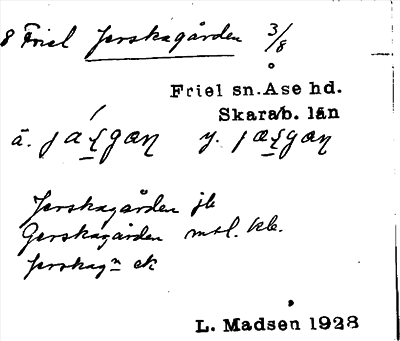 8 Friel Jerskagården 3/8
Friel sn. Åse hd.
Skarab. län
ä. y.
Jerskagården jb
Gerskagården mtl. kb.
Jerskagn ek
L. Madsen 1928